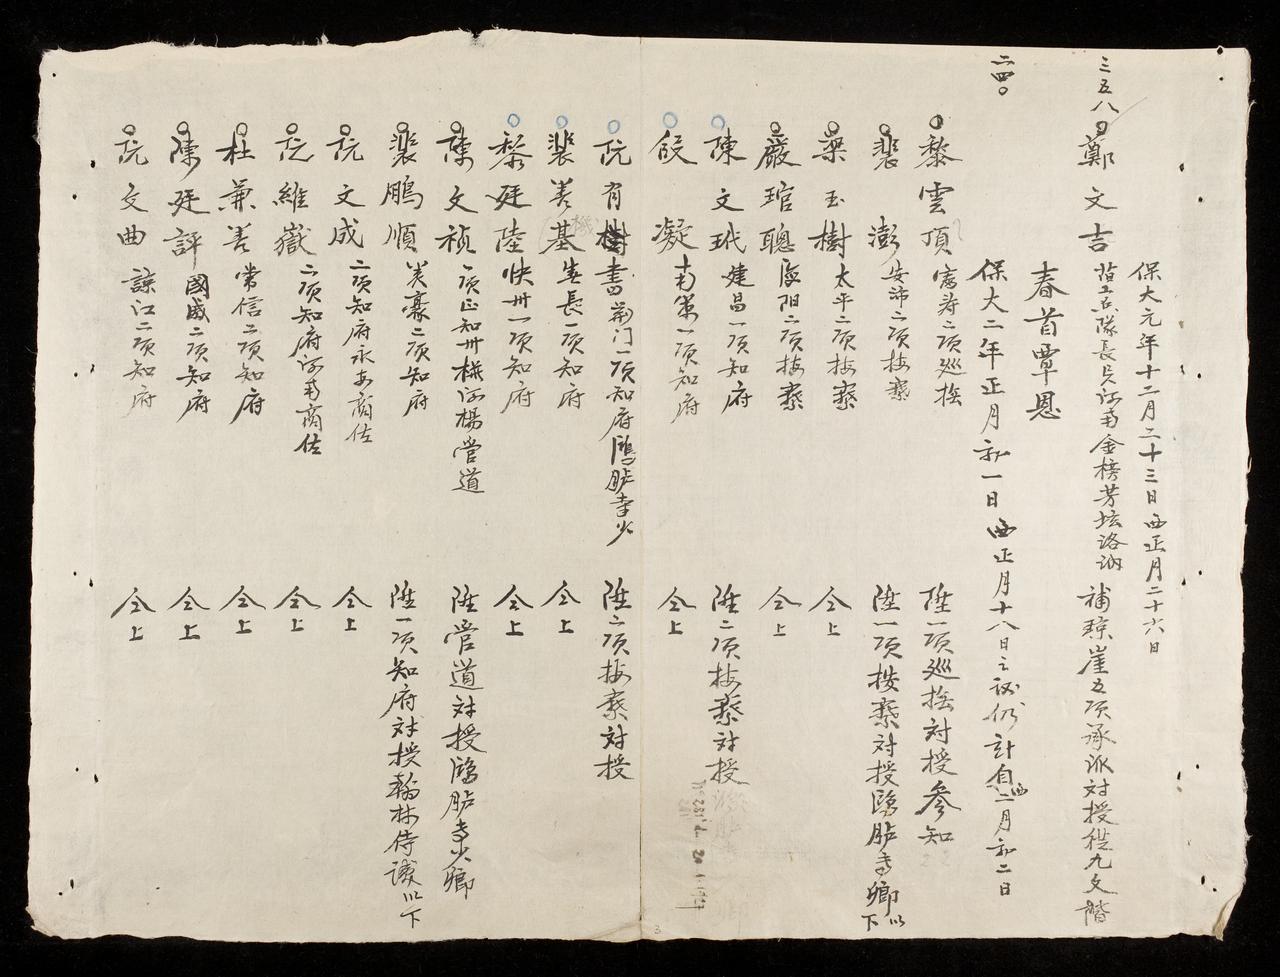 保大元年十二月二十三日西正月二十六日
三五八 鄭文吉 苔工兵隊長兵河南金榜芳坛洛汭 補瓊崖五項承派对授從九文階
春首覃恩
二四〇 保大二年正月初一日西正月十八日之认仍計自西二月初二日
黎雲頂 富寿二項巡撫 陞一項巡撫对授參知
裴澎 安沛二項按察 陞一項按察对授鴻胪寺卿以下
梁玉樹 太平二項按察 仝上
嚴琯聰 海阳二項按察 仝上
陳文玳 建昌一項知府 陞二項按察对授
段凝 南策一項知府 仝上
阮有樹 書 荊门一項知府鴻胪寺少 陞二項按察对授
裴善基 機 春長一項知府 仝上
黎廷陸 快州一項知府 仝上
陳文禎 一項正知州権河楊營道 陞營道对授鴻胪寺少卿
裴鵬順 芙豪二項知府 陞一項知府对授翰林侍讀以下
阮文成 二項知府永安商佐 仝上
阮維嶽 二項知府河南商佐 仝上
杜兼善 常信二項知府 仝上
陳廷評 國威二項知府 仝上
阮文曲 諒江二項知府 仝上
3